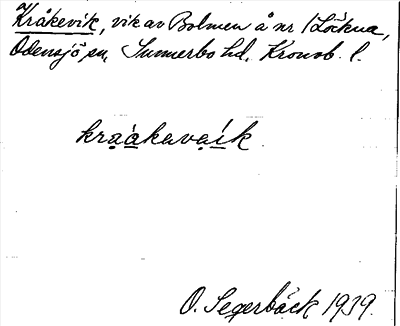 Kråkevik, vik av Bolmen å nr 1 Löckna,
Odensjö sn, Sunnerbo hd, Kronob. l.
kra̤a̤kava̤ík
O. Segerbäck 1939.